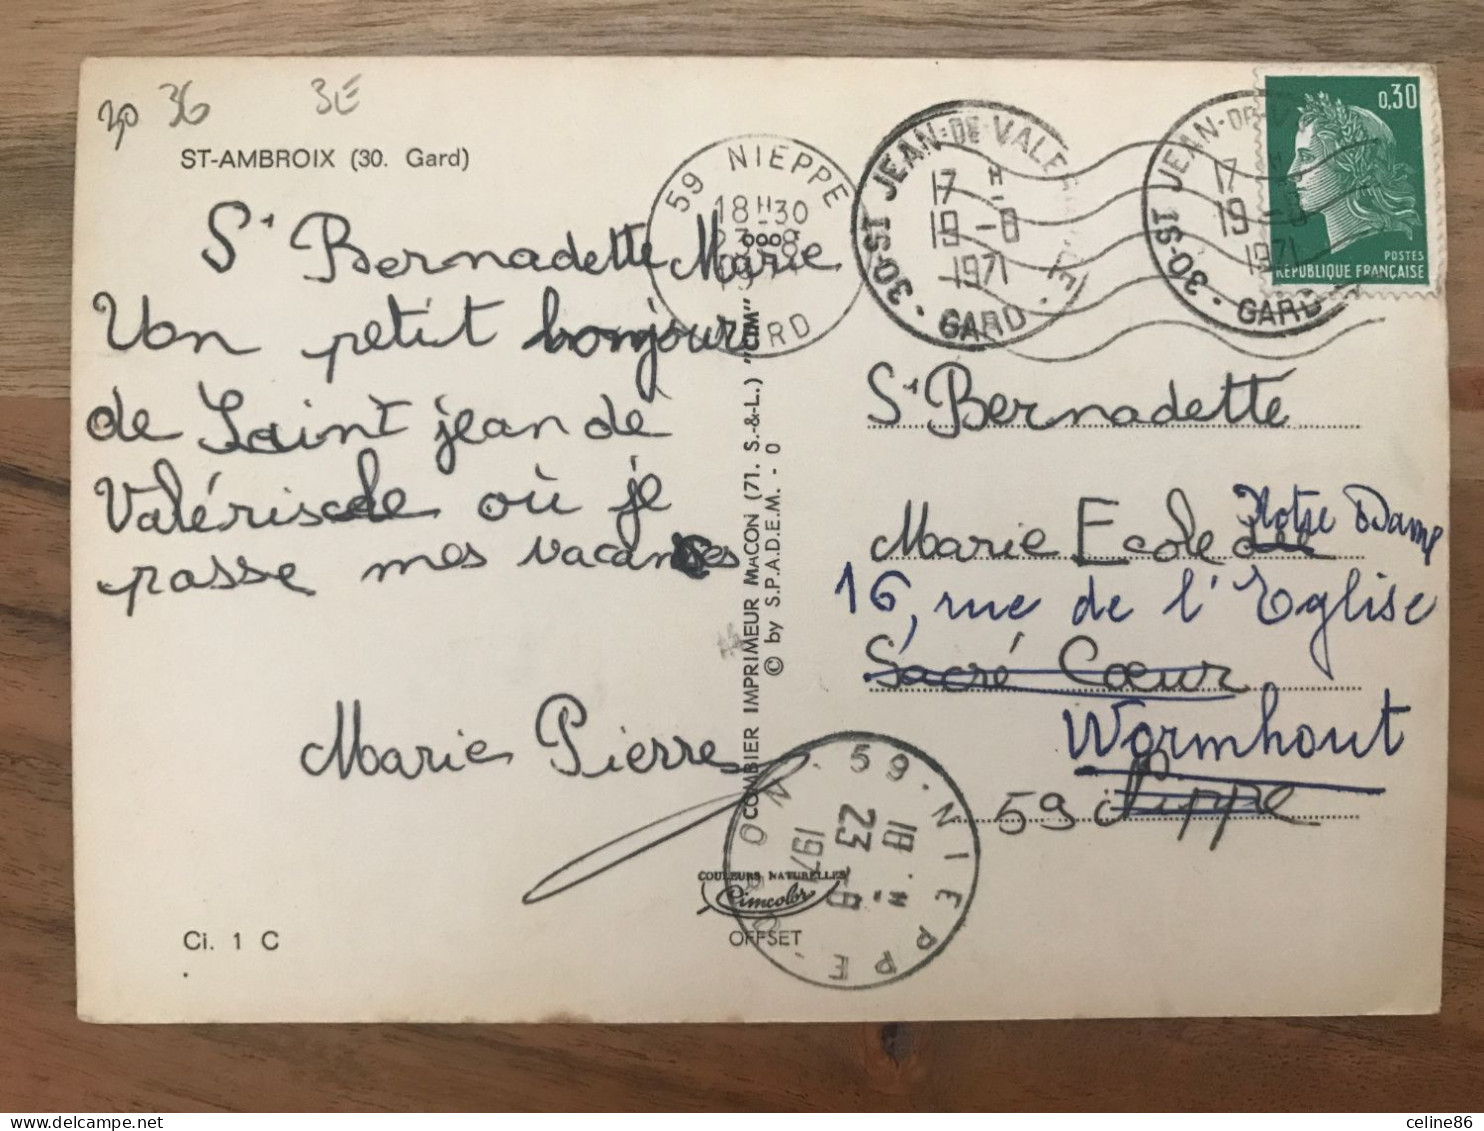 30 36 3E
ST-AMBROIX (30. Gard)
Sr Bernadette Marie
Un petit bonjour
de Saint jean de
Valériscle où je
passe mes vacances
Marie Pierre
Ci. 1 C
59 NIEPPE
18H30
23-8
NORD
COMBIER IMPRIMEUR MACON (71. S.-&-L.) "CIM"
© by S.P.A.D.E.M. - 0
COULEURS NATURELLES
Cimcolor
OFFSET
30-ST JEAN-DE-VALERISCLE
17 H
19-8
1971
GARD
30-ST JEAN-DE-V
17 H
19-8
1971
GARD
0,30
POSTES
RÉPUBLIQUE FRANÇAISE
Sr Bernadette
Marie Ecole du Notre Dame
16, rue de l'Eglise
Sacré Cœur
Wormhout
59 Nieppe
59-NIEPPE-NORD
18 H
23-8
1971
celine86